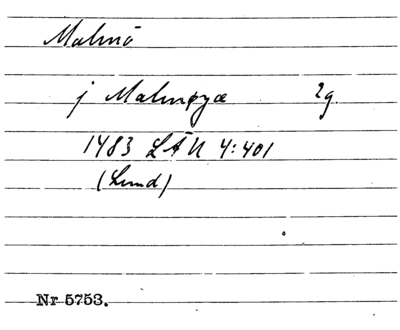 Malmö
j Malmøyæ 2g.
1483 LÄU 4:401
(Lund)
Nr 5753.